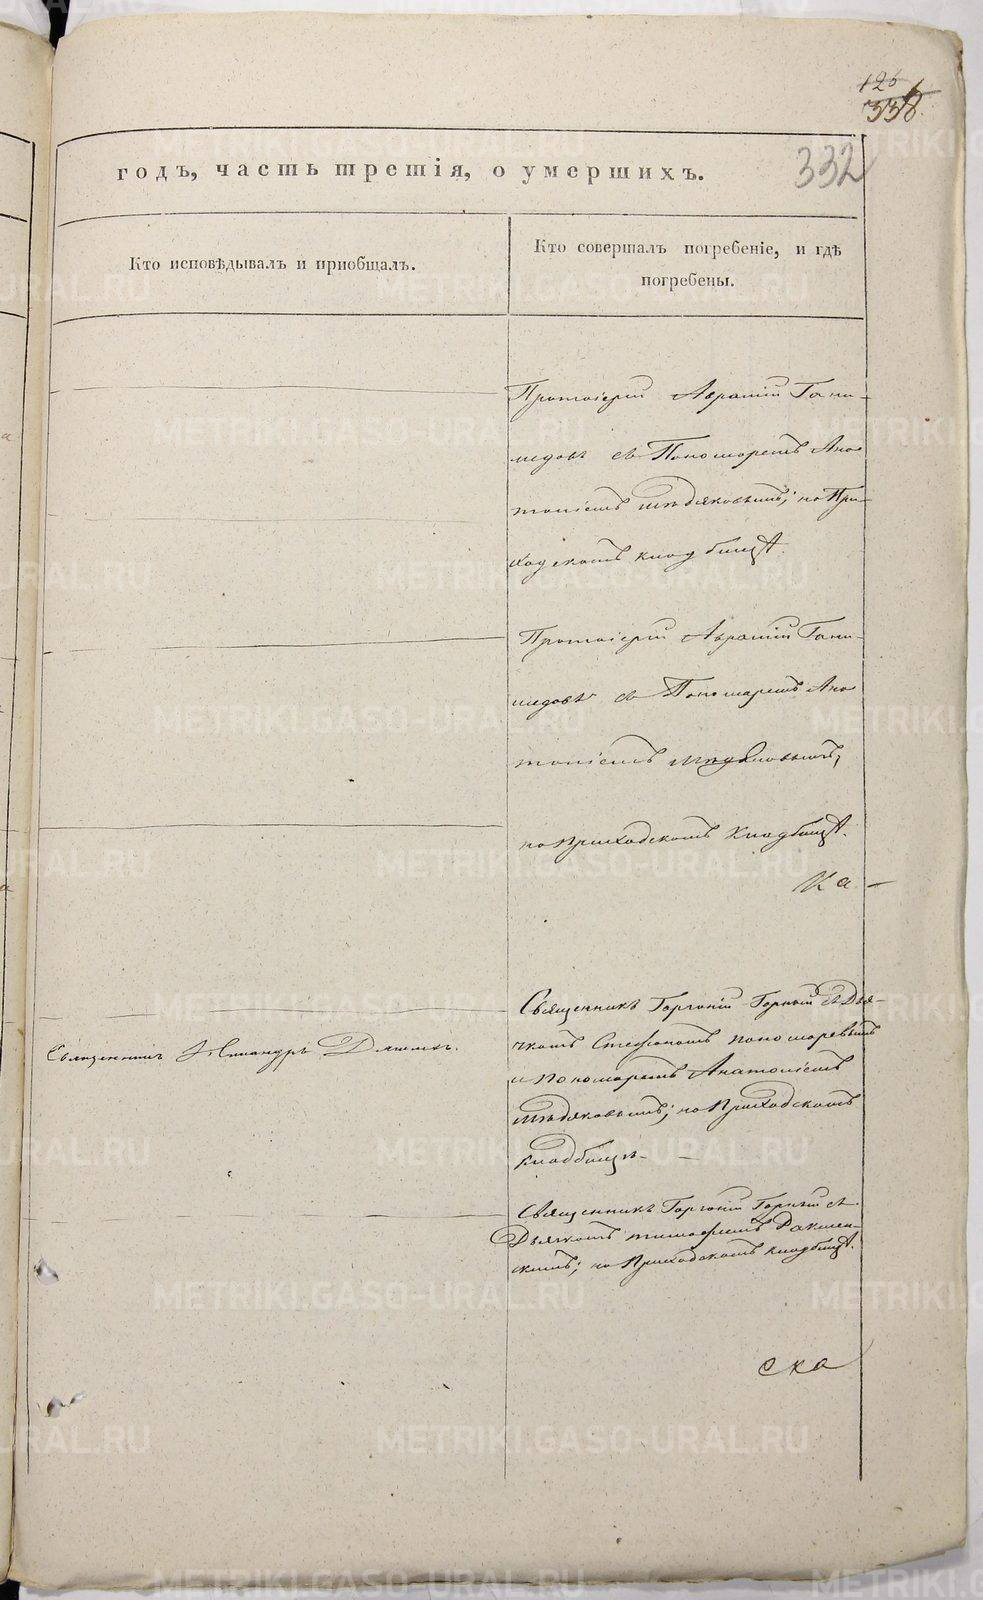 125
338
332
годъ, часть третія, о умершихъ.
Кто исповѣдывалъ и пріобщалъ.
Кто совершалъ погребеніе, и гдѣ
погребены.
Протоіерей Авраамій Гани-
медовъ съ Пономаремъ Ана
толіемъ Мѣдяковымъ; на При-
ходскомъ кладбищѣ.
Протоіерей Авраамій Гани-
медовъ съ Пономаремъ Ана
толіемъ Мѣдяковымъ,
на Приходскомъ Кладбищѣ.
Ка-
Священникъ Горгоній Горный съ Дья-
чкомъ Стефаномъ Пономаревымъ
Священникъ
и Пономаремъ Анатоліемъ
Мѣдяковымъ; на Приходскомъ
Кладбищѣ
Священникъ Горгоній Горный съ
Дьячкомъ Тимофеемъ
скимъ; на Приходскомъ кладбищѣ.
ска
METRIKI.GASO-URAL.RU